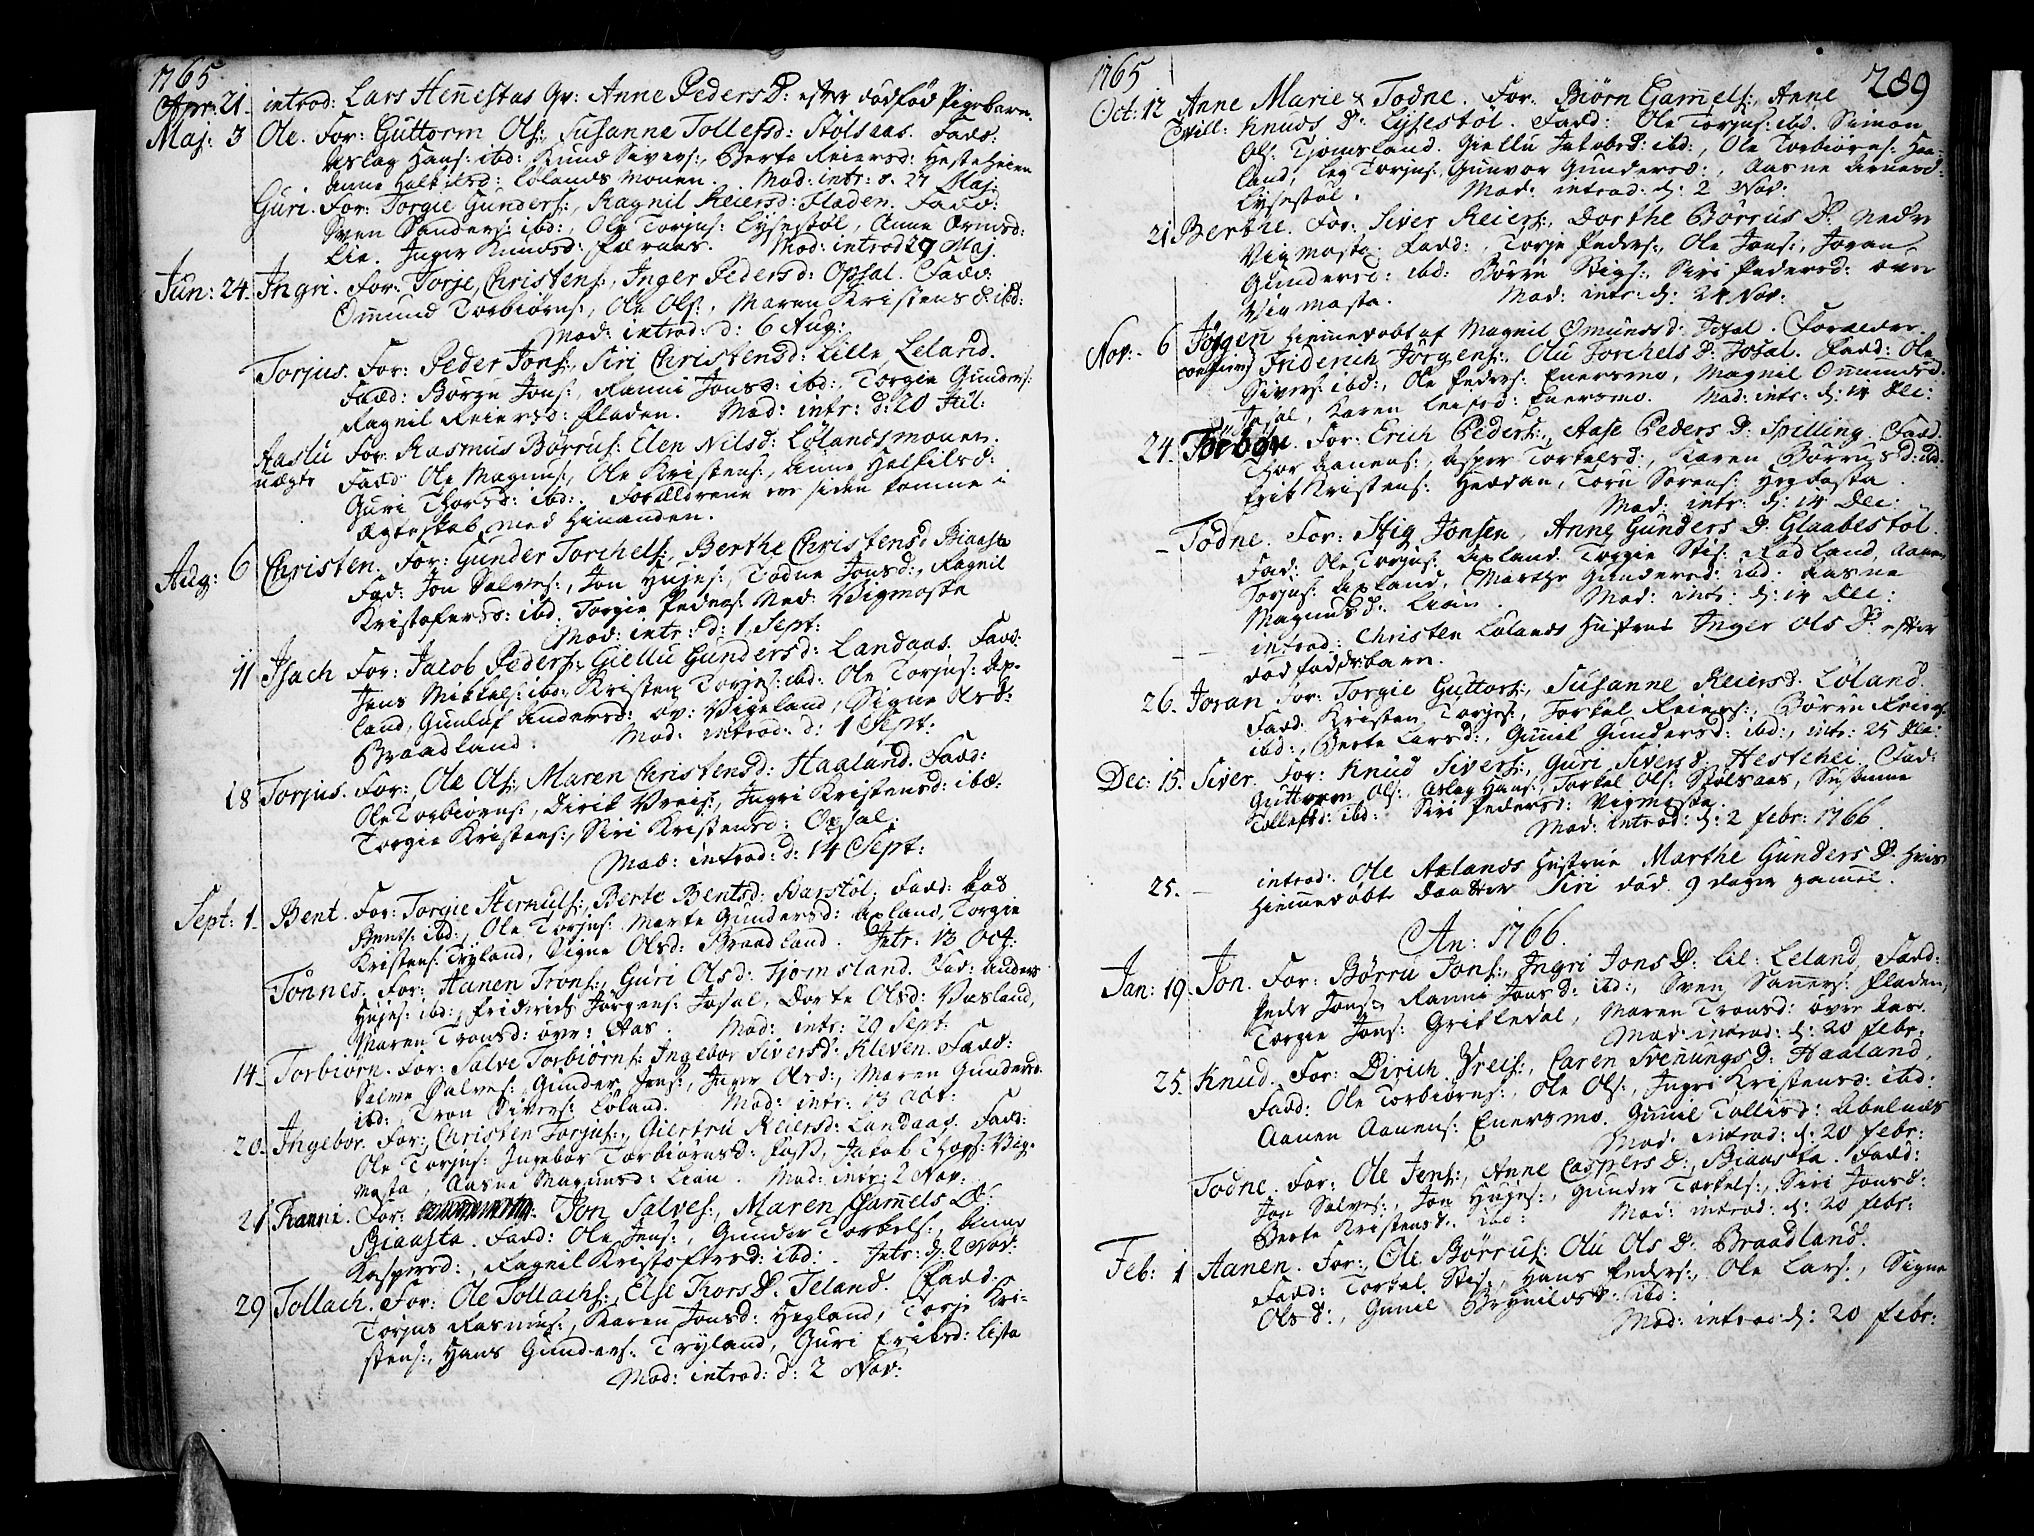 1765
Apr: 21. introd: Lars Hennestas Qv: Anne Peders D: efter dødfød Pigebarn.
Maj: 3 Ole. For: Guttorm Ols:, Susanne Tollefsd: Stölsaas. Fadd:
Aslag Hans: ibd: Knud Sivers:, Berte Reiersd: Hesteheien
Anne Halkilsd: Lölands monen. Mod: intr: d. 27 Maj.
Guri. For: Torgie Gunders:, Ragnil Reiersd: Fladen. Fadd:
Sven Sanders: ibd:, Ole Torjus: Lysestöl, Anne Ormsd:
Lie. Inger Knudsd: Faraas. Mod: introd 29 Maj.
Jun: 24. Ingri. For: Torje Christens:, Inger Pedersd: Opsal. Fadd:
Ommund Torbiörns:, Ole Ols:, Maren Kristensd: ibd:
Mod: introd: d: 6 Aug:
Torjus. For: Peder Jons:, Siri Christensd: Lille Leland.
Fadd: Börru Jons:, Ranni Jonsd: ibd:, Torgie Gunders:
Ragnil Reiersd: Fladen. Mod: intr: d: 20 Jul:
Aaslu For: Rasmus Börrus: Elen Nilsd: Lölandsmonen.
uægte Fadd: Ole Magnus:, Ole Kristens:, Anne Halkilsd:
Guri Thorsd: ibd:. Forældrene ere siden komne i
Ægteskab med hinanden.
Aug: 6 Christen. For: Gunder Torchels:, Berthe Christensd: Biaasta
Fad: Jon Salves:, Jon Hujes:, Todne Jonsd:, Ragnil
Kristofersd: ibd. Torgie Peders: Ned: Vigmosta
Mod: intr: d: 1 Sept:
11 Isach For: Jacob Peders:, Giellu Gundersd: Landaas. Fadd:
Jens Mikkels: ibd:, Kristen Torjes: ibd: Ole Torjus: Ap-
land, Gunlöf Andersd: ov: Vigeland, Signe Olsd:
Braadland. Mod: introd: d: 1 Sept:
18 Torjus. For: Ole Ols:, Maren Christensd: Haaland. Fadd:
Ole Torbiörns:, Dirik Vreis:, Ingri Kristensd: ibd:
Torgie Kristens:, Siri Kristensd: Opsal.
Mod: introd: d: 14 Sept:
Sept: 1. Bent. For: Torgie Stenuls:, Berte Bentsd: Harstöl. Fadd:
Bents: ibd:, Ole Torjus: Marte Gundersd: Apland, Torgie
Kristens: Tryland, Signe Olsd: Braadland. Intr: 13 Oct:
Tönnes. For: Aanen Trons:, Guri Olsd: Tjomsland. Fad: Anders
Hujes: ibd:, Friderich Jörgens: Josal, Dorte Olsd: Vasland,
Maren Tronsd: övr: Aas. Mod: intr: 29 Sept:
14. Torbiörn. For: Salve Torbiörns: Ingebor Siversd: Kleven. Fadd:
Salve Salves:, Gunder Jens:, Inger Olsd:, Maren Gundersd:
ibd: Tron Sivers: Löland. Mod: intr: 13 Oct:
20. Ingebor. For:, Christen Torjus:, Giertru Reiersd: Landaas. Fadd:
Ole Torjus: Ingebor Torbiörnsd: Foss, Jakob Thors: Vig-
mosta, Aasne Magnusd: Lien. Mod: intr: 2 Nov:
21 Ranni. For: Jon Salves:, Maren Gamels D:
Biaasta. Fadd: Ole Jens:, Gunder Torkels:, Anne
Kaspersd:, Ragnil Kristofersd: ibd:. Intr: d: 2 Nov:
29 Tollach. For: Ole Tollachs:, Else Thors D: Teland. Fadd:
Torjus Rasmus:, Karen Jonsd: Hegland, Torje Kri-
stens:, Hans Gunders: Tryland, Guri Eriksd: Lista
Mod: introd: d: 2 Nov:
1765
289
Oct: 12 Anne Marie & Todne. For: Biörn Gamels:, Anne
Tvill: Knuds D: Lysestöl. Fadd: Ole Torjus: ibd. Simon
Ols: Tjomsland. Giellu Jakobsd: ibd:, Ole Torbiörns: Haa-
land, Torjus:, Gunvor Gundersd:, Aasne Arnesd:
Lysestöl. Mod: introd: d: 2 Nov:
21 Berthe. For: Siver Reiers:, Dorthe Börrus D: nedre
Vigmosta. Fadd:, Torje Peders:, Ole Jons:, Joran
Gundersd: ibd: Börru Stigs:, Siri Pedersd: övre
Vigmosta. Mod: intr: d: 24 Nov:
Nov: 6 Jörgen hiemmedöbt af Magnil Omunds D: Josal. Forældre.
confirm) Friderich Jörgens:, Olu Torchels D: Josal. Fadd: Ole
Sivers: ibd:, Ole Peders: Enersmo, Magnil Ommundsd:
Josal, Karen Leifsd: Enersmo. Mod: intr: d: 14 Dec:
24. Torbör. For: Erich Peders:, Aase Peders D: Spilling. Fadd:
Thor Aanens:, Asper Torkelsd:, Karen Börrusd: ibd:
Erik Kristens: Heddan, Toru Sörens: Hogfosta
Mod: intr: d: 14 Dec:
– Todne. For: Stig Jonsen, Anne Gunders D: Glaabestöl.
Fad: Ole Torjus: Apland. Torgie Stis: Rödland, Aanen
Torjus: Apland, Marthe Gundersd: ibd: Aasne
Magnusd: Lien. Mod: intr: d: 14 Dec:
– introd: Christen Lölands Hustrue Inger Ols D: efter
dödföddebarn.
26. Joran For: Torgie Guttors:, Susanne Reiersd: Löland.
Fadd: Kristen Torjes:, Torkel Reiers:, Börru Reiers:
ibd:, Berte Larsd:, Gunnil Gundersd: ibd:, intr: 25 Dec:
Dec: 15. Siver. For: Knud Sivers:, Guri Siversd: Hestehei. Fad:
Guttorm Ols:, Aslag Hans:, Torkel Ols: Stölsaas, Susanne
Tollefsd: ibd: Siri Pedersd: Vigmosta.
Mod: introd: d: 2 Febr: 1766.
25. – introd: Ole Aalands Hustrue Marthe Gunders D: hvis
hiemmedöbte Daatter Siri död 9 dager gamel.
An: 1766.
Jan: 19. Jon. For: Börru Jons:, Ingri Jons D: Lil: Leland, Fadd:
Peder Jons: Ranni Jonsd: ibd:, Sven Sanders: Fladen,
Torgie Jons: Grikledal, Maren Tronsd: övre Aas.
Mod: introd: d: 20 Febr:
25. Knud. For: Dirich Vreis:, Caren Svenungsd: Haaland.
Fadd: Ole Torbiörns:, Ole Ols:, Ingri Kristensd: ibd:
Aanen Aanens: Enersmo. Gunil Tollisd: Abelnæs
Mod: introd: d: 20 Febr:
Todne. For: Ole Jens:, Anne Caspers D:, Biaasta. Fadd:
Jon Salves:, Jon Hujes:, Gunder Torkels:, Siri Jonsd:
Berte Kristensd: ibd: Mod: introd: d: 20 Febr:
Feb: 1 Aanen. For:, Ole Börrus: Olu Ols D: Braadland.
Fadd: Torkel Stis:, Hans Peders:, Ole Lars:, Signe
Ols D:, Gunil Brynildsd: ibd:
Mod: introd: d: 20 Febr: